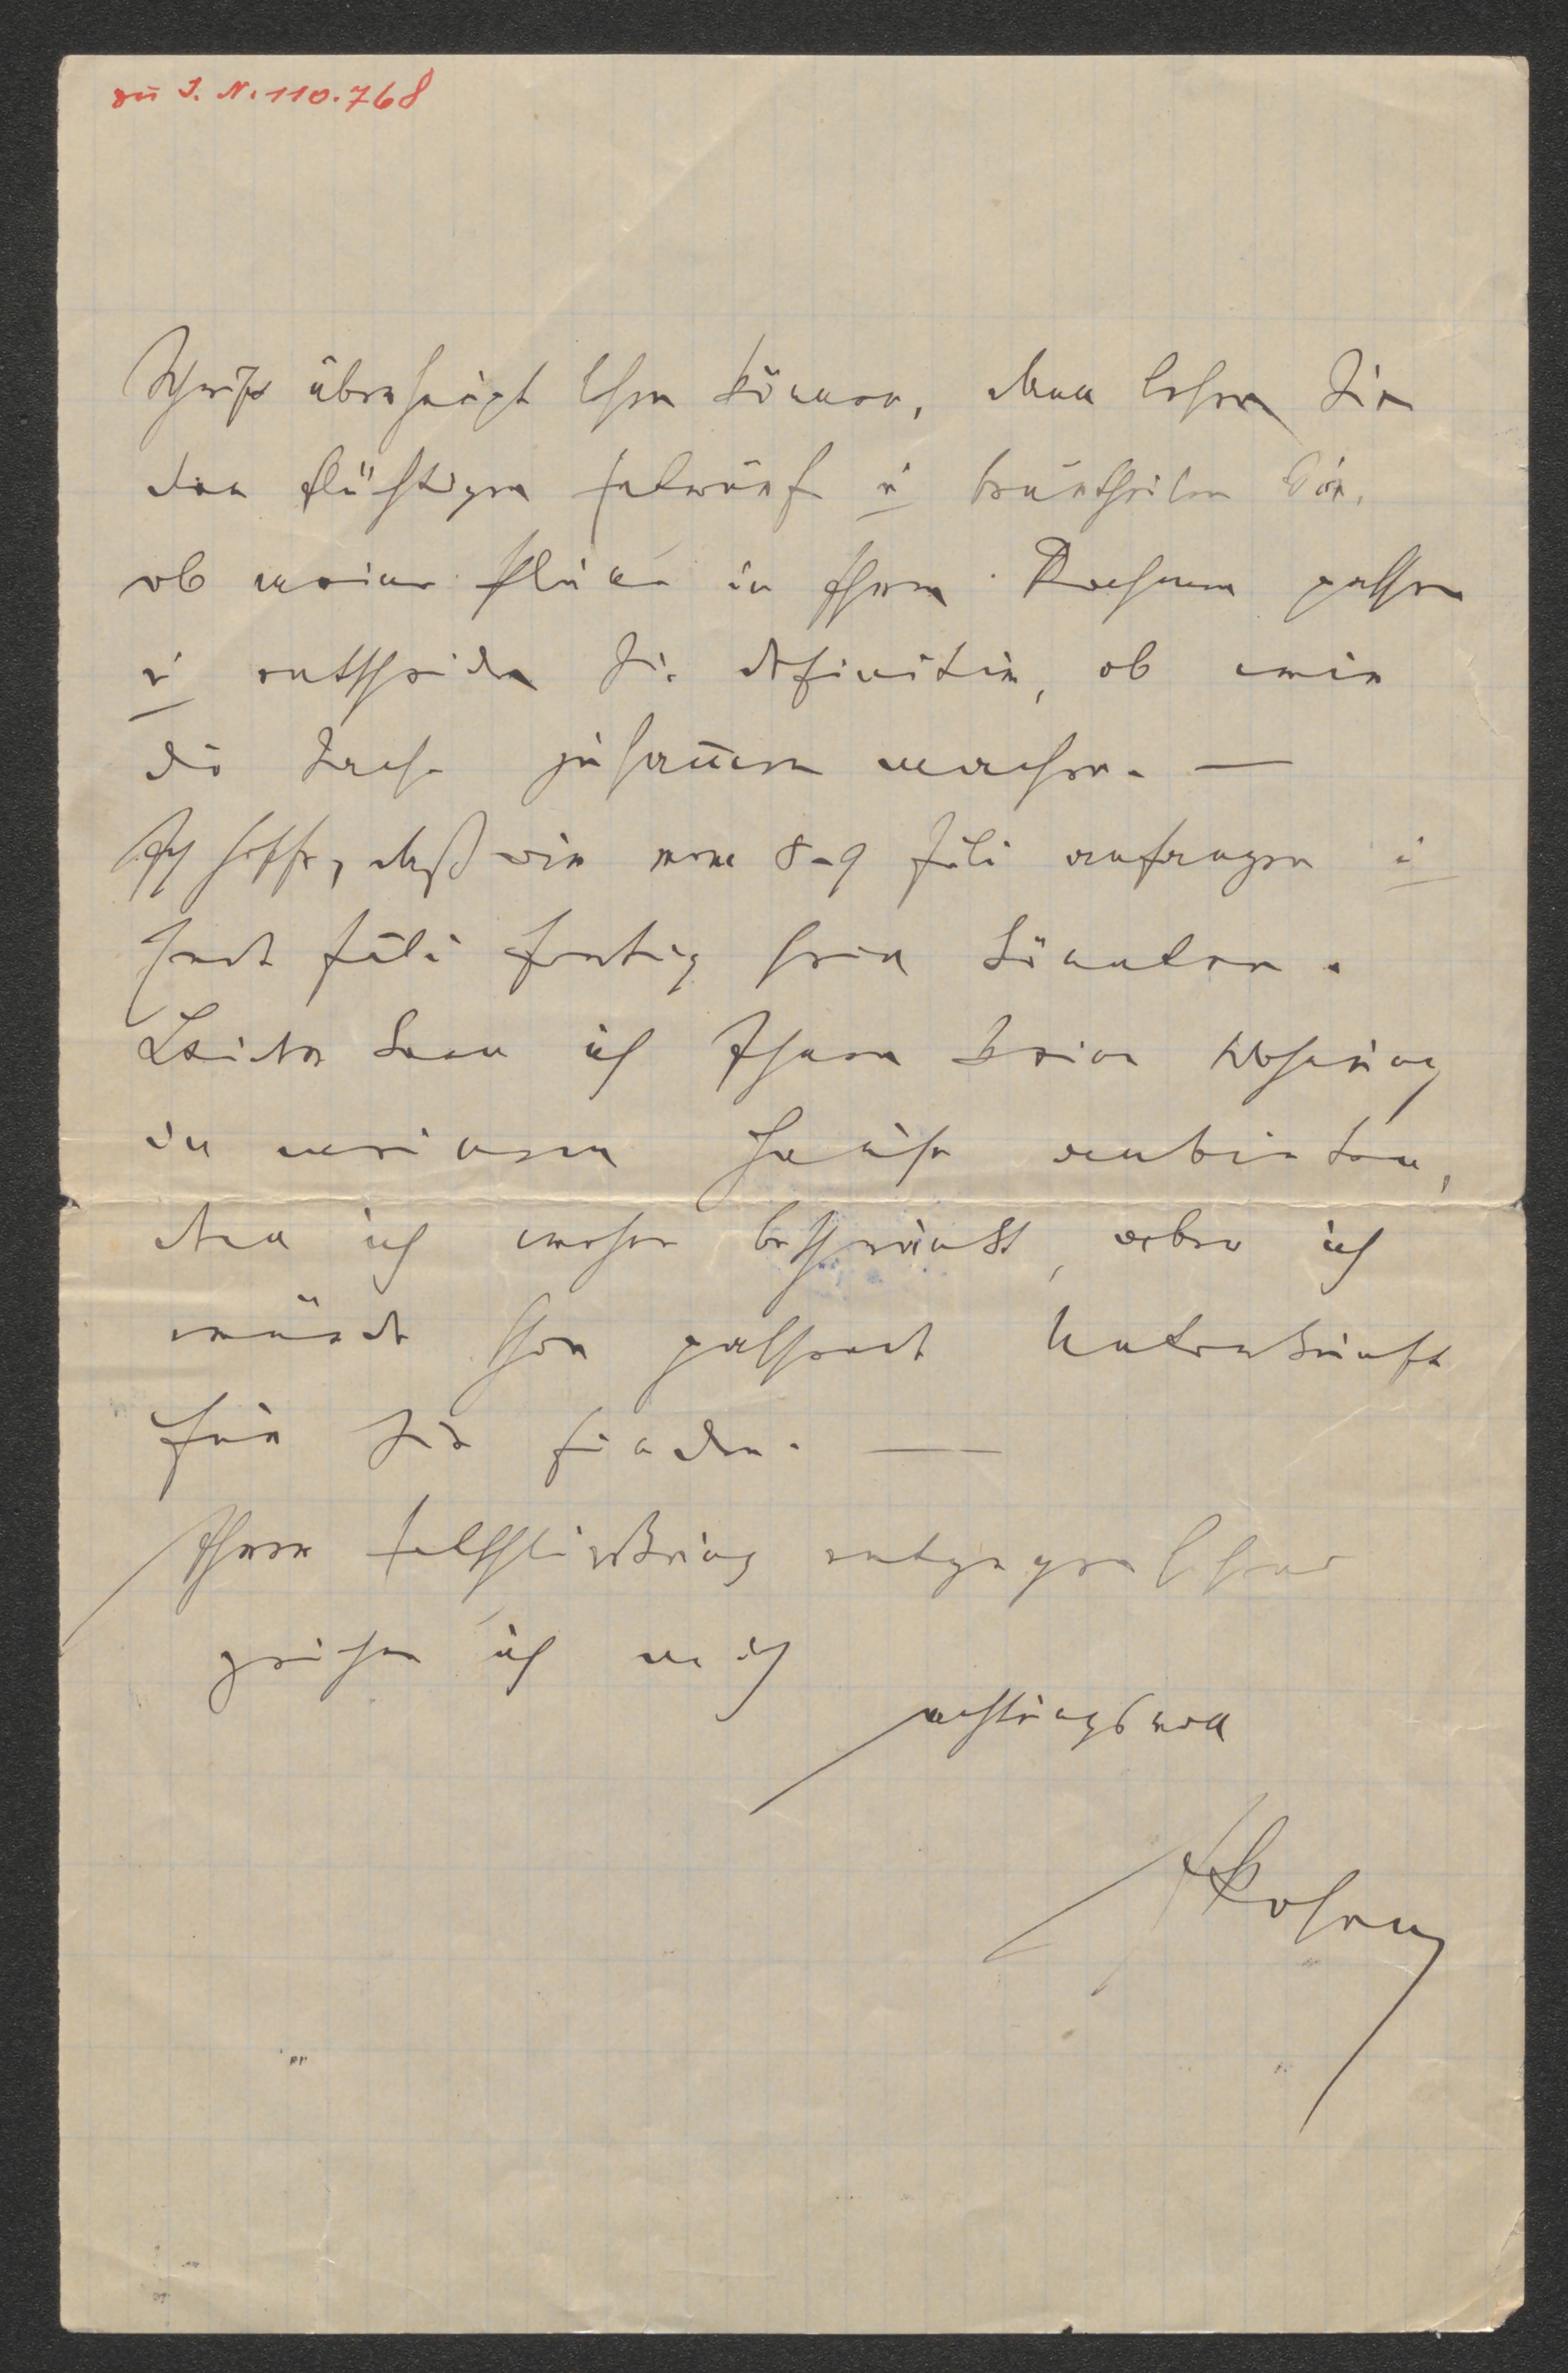 zu I. N. 110.768
Schrift überhaupt lesen können, dann lesen Sie
den flüchtigen Entwurf u beurtheilen Sie,
ob meine Pläne in Ihren Rahmen passen
u entscheiden Sie definitiv, ob wir
die Sache zusam̄en machen. —
Ich hoffe, daß wir vom 8-9 Juli anfangen u
Ende Juli fertig sein könnten.
Leider kann ich Ihnen keine Wohnung
in meinem Hause anbieten,
denn ich wohne beschränkt, aber ich
würde schon passende Unterkunft
für Sie finden. —
Ihrer Entschließung entgegensehend
zeichne ich mich
achtungsvoll